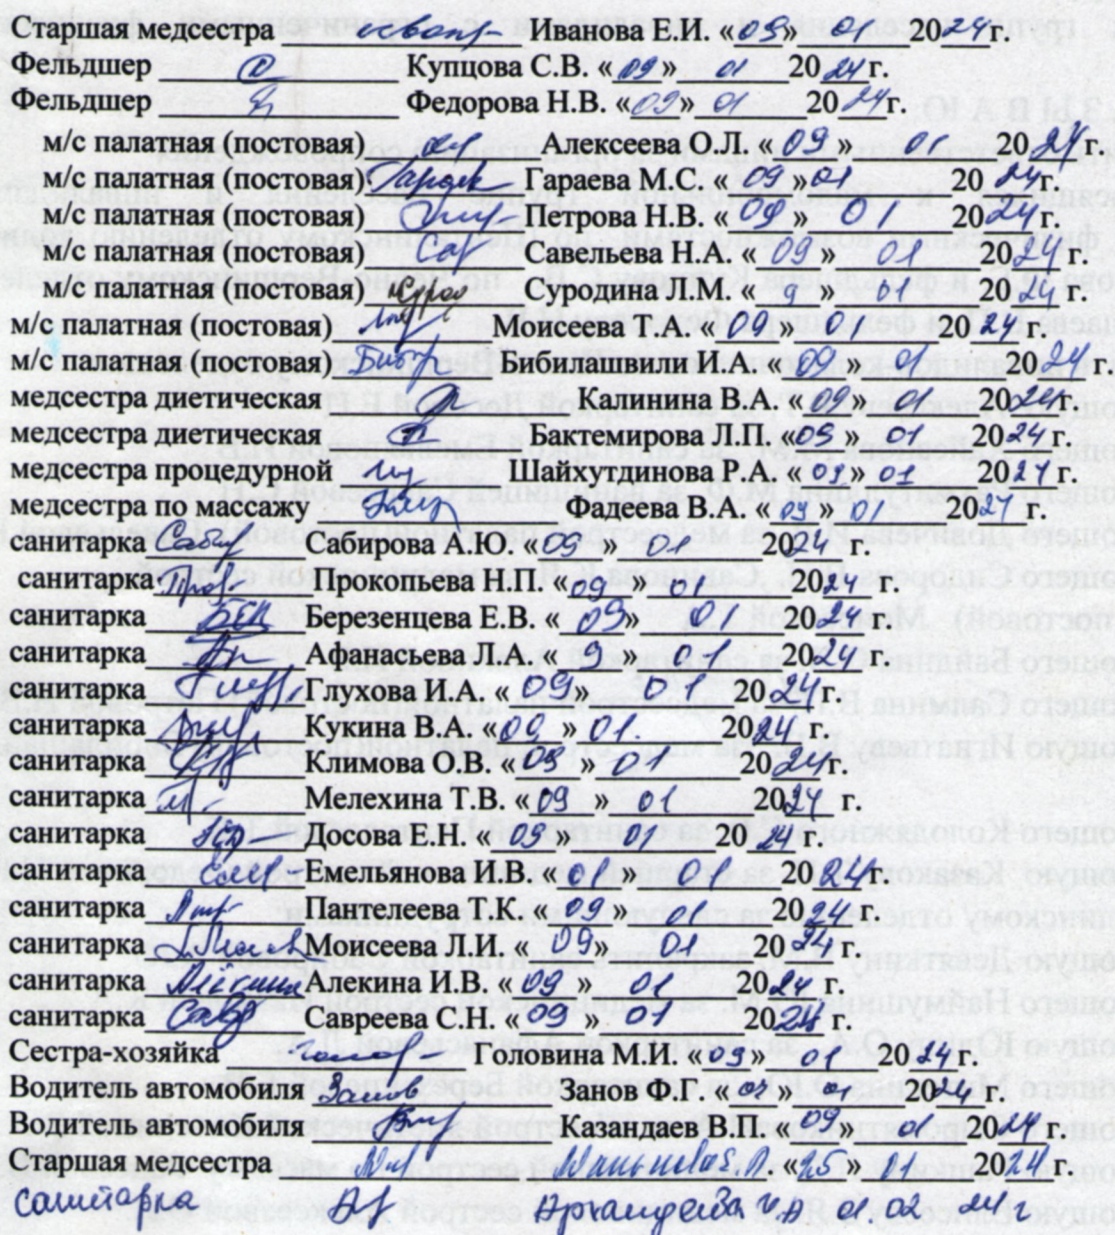 Старшая медсестра Иванова Е.И. «09» 01 2024г.
Фельдшер Купцова С.В. «09» 01 2024г.
Фельдшер Федорова Н.В. «09» 01 2024г.
м/с палатная (постовая) Алексеева О.Л. «09» 01 2024г.
м/с палатная (постовая) Гараева М.С. «09» 01 2024г.
м/с палатная (постовая) Петрова Н.В. «09» 01 2024г.
м/с палатная (постовая) Савельева Н.А. «09» 01 2024г.
м/с палатная (постовая) Суродина Л.М. «9» 01 2024г.
м/с палатная (постовая) Моисеева Т.А. «09» 01 2024г.
м/с палатная (постовая) Бибилашвили И.А. «09» 01 2024г.
медсестра диетическая Калинина В.А. «09» 01 2024г.
медсестра диетическая Бактемирова Л.П. «09» 01 2024г.
медсестра процедурной Шайхутдинова Р.А. «09» 01 2024г.
медсестра по массажу Фадеева В.А. «09» 01 2024г.
санитарка Сабирова А.Ю. «09» 01 2024 г.
санитарка Прокопьева Н.П. «09» 01 2024г.
санитарка Березенцева Е.В. «09» 01 2024г.
санитарка Афанасьева Л.А. «9» 01 2024г.
санитарка Глухова И.А. «09» 01 2024г.
санитарка Кукина В.А. «09» 01. 2024г.
санитарка Климова О.В. «09» 01 2024г.
санитарка Мелехина Т.В. «09» 01 2024 г.
санитарка Досова Е.Н. «09» 01 2024г.
санитарка Емельянова И.В. «01» 01 2024г.
санитарка Пантелеева Т.К. «09» 01 2024г.
санитарка Моисеева Л.И. «09» 01 2024г.
санитарка Алекина И.В. «09» 01 2024г.
санитарка Савреева С.Н. «09» 01 2024г.
Сестра-хозяйка Головина М.И. «09» 01 2024г.
Водитель автомобиля Занов Ф.Г. «09» 01 2024г.
Водитель автомобиля Казандаев В.П. «09» 01 2024г.
Старшая медсестра «25» 01 2024г.
Санитарка 01.02 24г